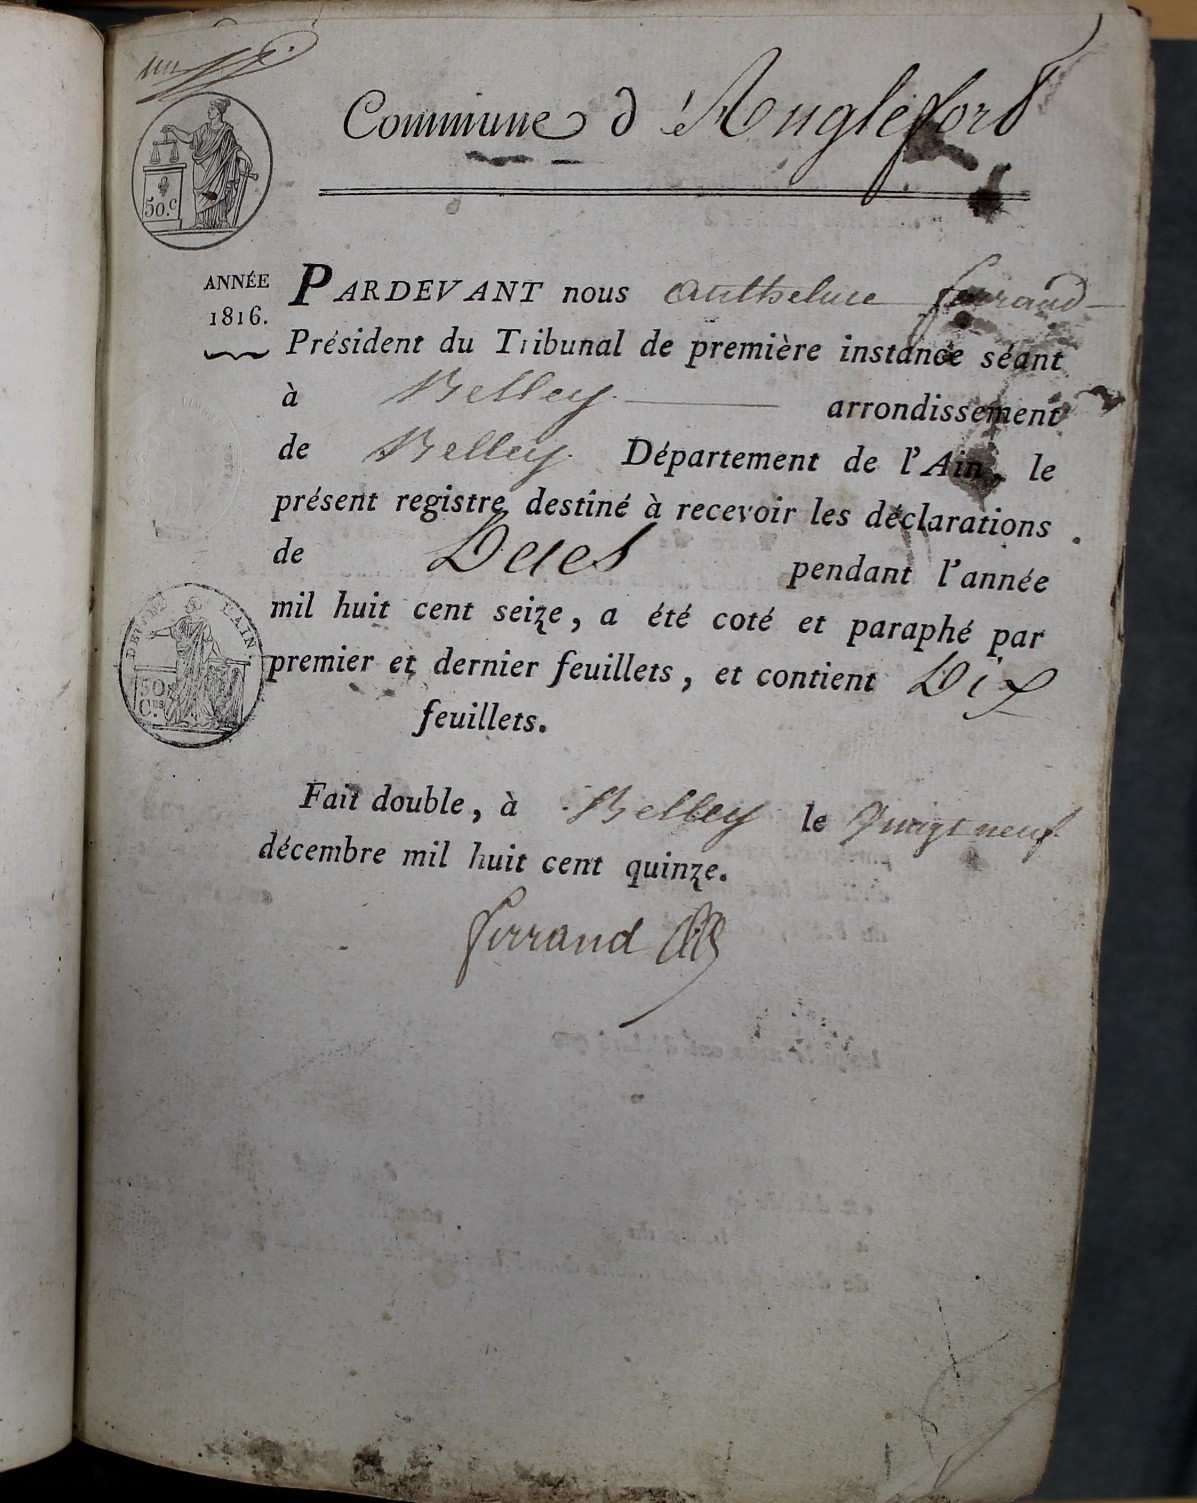 un
Commune d'Anglefort
50.c
ANNÉE
1816.
PARDEVANT nous Anthelme ferrand
Président du Tribunal de première instance séant
à Belley arrondissement
de Belley Département de l'Ain, le
présent registre destiné à recevoir les déclarations
de Deces pendant l'année
mil huit cent seize, a été coté et paraphé par
premier et dernier feuillets, et contient Dix
feuillets.
L'AIN.
50
C.mes
Fait double, à Belley le Vingt neuf
décembre mil huit cent quinze.
ferrand